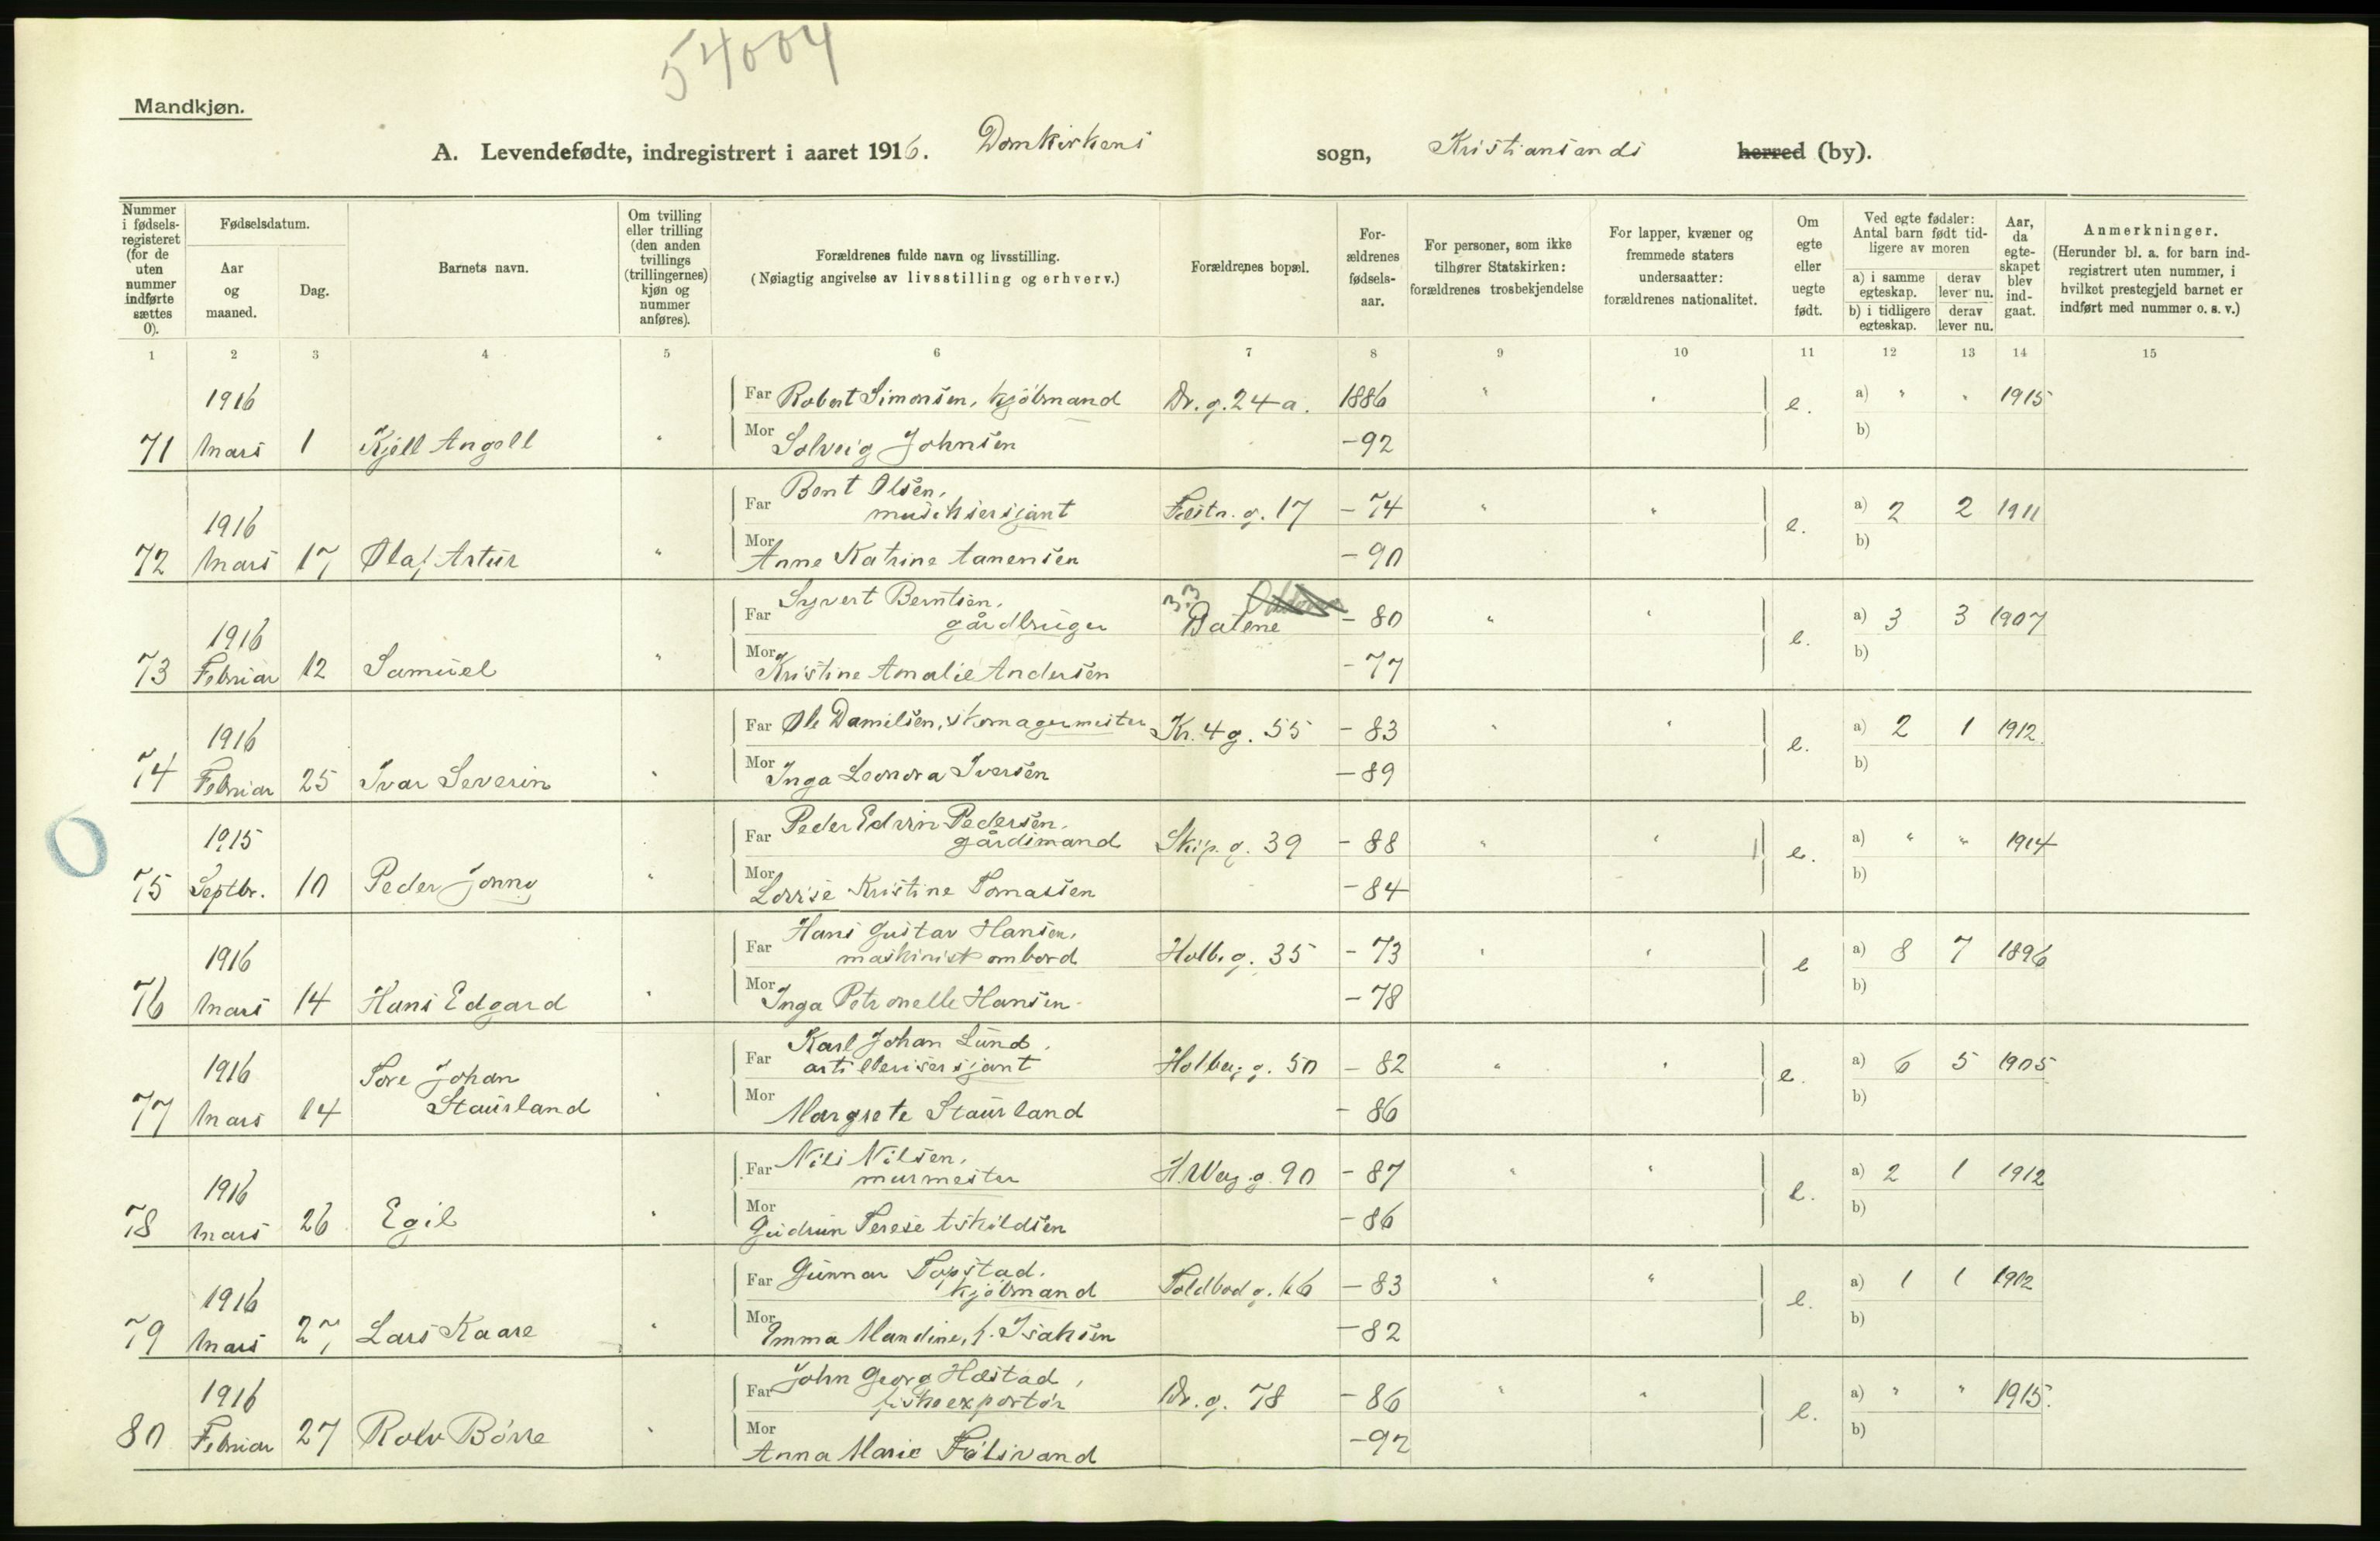 54004
Mandkjøn.
A. Levendefødte, indregistrert i aaret 1916. Domkirkens sogn, Kristiansands herred (by).
Nummer i fødsels-registeret (for de uten nummer indførte sættes 0).
Fødselsdatum.
Aar og maaned.
Dag.
Barnets navn.
Om tvilling eller trilling (den anden tvillings (trillingernes) kjøn og nummer anføres).
Forældrenes fulde navn og livsstilling.
(Nøiagtig angivelse av livsstilling og erhverv.)
Forældrenes bopæl.
For-ældrenes fødsels-aar.
For personer, som ikke tilhører Statskirken: forældrenes trosbekjendelse
For lapper, kvæner og fremmede staters undersaatter: forældrenes nationalitet.
Om egte eller uegte født.
Ved egte fødsler: Antal barn født tid-ligere av moren
a) i samme egteskap. derav lever nu.
b) i tidligere egteskap. derav lever nu.
Aar, da egte-skapet blev ind-gaat.
Anmerkninger.
(Herunder bl. a. for barn ind-registrert uten nummer, i hvilket prestegjeld barnet er indført med nummer o. s. v.)
1 2 3 4 5 6 7 8 9 10 11 12 13 14 15
1916 Far Robert Simonsen, kjøbmand Dr. g. 24a. 1886 " " e. a) " " 1915
71 Mars 1 Kjell Angell " Mor Solveig Johnsen -92 b)
Far Bent Olsen,
1916 musiksersjant Festn. g. 17 - 74 " " e. a) 2 2 1911
72 Mars 17 Olaf Artur " Mor Anne Katrine Aanensen - 90 b)
Far Syvert Berntsen, 33
1916 gårdbruger Dalene - 80 " " e. a) 3 3 1907
73 Februar 12 Samuel " Mor Kristine Amalie Andersen - 77 b)
1916 Far Ole Danielsen, skomagermester Kr. 4 g. 55 - 83 " " e. a) 2 1 1912
74 Februar 25 Ivar Severin " Mor Inga Leonora Iversen - 89 b)
0
Far Peder Edvin Pedersen,
1915 gårdsmand Skip. g. 39 - 88 " " e. a) " " 1914
75 Septbr. 10 Peder Jonny " Mor Lovise Kristine Tomassen - 84 b)
Far Hans Gustav Hansen,
1916 maskinist ombord Holb. g. 35 - 73 " " e a) 8 7 1896
76 Mars 14 Hans Edgard " Mor Inga Petronelle Hansen - 78 b)
Far Karl Johan Lund,
1916 Tore Johan artillerisersjant Holberg. g. 50 - 82 " " e. a) 6 5 1905
77 Mars 14 Staurland " Mor Margrete Staurland - 86 b)
Far Nils Nilsen,
1916 murmester H. Werg. g. 90 - 87 " " e. a) 2 1 1912
78 Mars 26 Egil " Mor Gudrun Terese Eskildsen - 86 b)
Far Gunnar Topstad,
1916 kjøbmand Toldbod g. 66 - 83 " " e. a) 1 1 1912
79 Mars 27 Lars Kaare " Mor Emma Mandine, f. Isaksen - 82 b)
Far John Georg Hæstad,
1916 fiskeexportør Dr. g. 78 - 86 " " e. a) " " 1915.
80 Februar 27 Rolv Börre " Mor Anna Marie - 92 b)